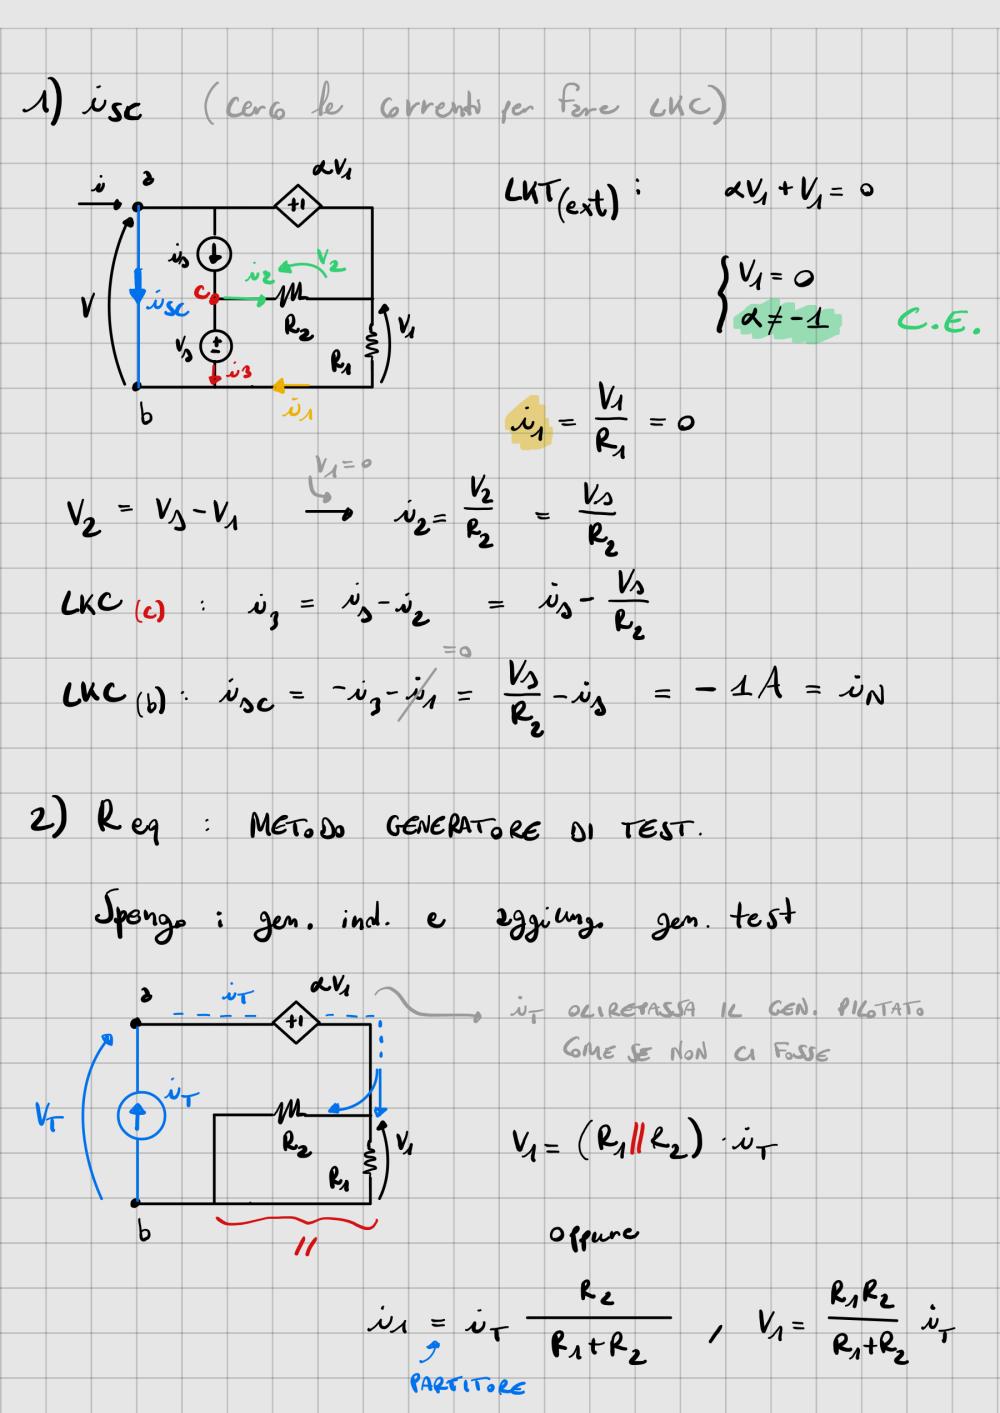 1) isc (cerco le correnti per fare LKC)
i a αV1
LKT(ext) : αV1 + V1 = 0
is i2 V2
c
V isc R2 V1
Vs R1
i3
b i1
{ V1 = 0
α ≠ -1 C.E.
i1 = V1/R1 = 0
V1 = 0
V2 = Vs - V1 → i2 = V2/R2 = Vs/R2
LKC (c) : i3 = is - i2 = is - Vs/R2
= 0
LKC (b) : isc = -i3 - i1 = Vs/R2 - is = - 1A = iN
2) Req : METODO GENERATORE DI TEST.
Spengo i gen. ind. e aggiungo gen. test
a iT αV1
iT OLTREPASSA IL GEN. PILOTATO
COME SE NON CI FOSSE
VT iT R2 V1
R1
b
//
V1 = (R1 // R2) · iT
oppure
i1 = iT R2/(R1+R2) , V1 = R1R2/(R1+R2) iT
PARTITORE